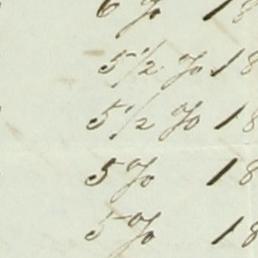 6 % 18
5 1/2 % 18
5 1/2 % 18
5 % 18
5 % 18